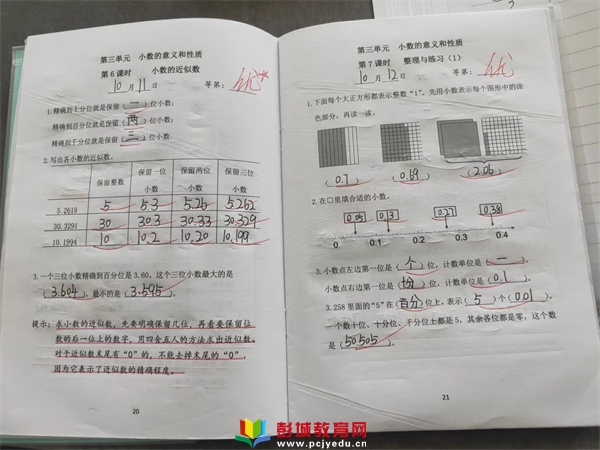 第三单元 小数的意义和性质
第6课时 小数的近似数
10月11日 等第：优
1.精确到十分位就是保留（一）位小数；
精确到百分位就是保留（两）位小数；
精确到千分位就是保留（三）位小数。
2.写出各小数的近似数。
保留整数 保留一位小数 保留两位小数 保留三位小数
5.2618 5 5.3 5.26 5.262
30.3291 30 30.3 30.33 30.329
10.1994 10 10.2 10.20 10.199
3.一个三位小数精确到百分位是3.60。这个三位小数最大的是
（3.604），最小的是（3.595）。
提示：求小数的近似数，先要明确保留几位，再看要保留位
数的后一位上的数字，用四舍五入的方法求出近似数。
对于近似数末尾有“0”的，不能去掉末尾的“0”，
因为它表示了近似数的精确程度。
20
第三单元 小数的意义和性质
第7课时 整理与练习（1）
10月12日 等第：优
1.下面每个大正方形都表示整数“1”，先用小数表示每个图形中的涂
色部分，再读一读。
（0.7） （0.69） （2.06）
2.在口里填合适的小数。
0.05 0.13 0.27 0.38
0 0.1 0.2 0.3 0.4
3.小数点左边第一位是（个）位，计数单位是（一）。
小数点右边第一位是（十分）位，计数单位是（0.1）。
3.258里面的“5”在（百分）位上，表示（5）个（0.01）。
一个数十位、十分位、千分位上都是5，其余各位都是零，这个数
是（50.505）。
21
彭城教育网
www.pcjyedu.cn